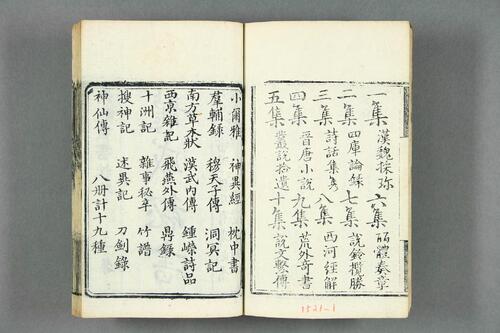 一集 漢魏採珍 六集 體奏章
二集 四庫論錄 七集 說鈴攬勝
三集 詩話集雋 八集 西河經解
四集 晉唐小說 九集 荒外奇書
五集 叢說拾遺 十集 說文繫傳
1521-1
小爾雅 神異經 枕中書
羣輔錄 穆天子傳 洞冥記
南方草木狀 漢武內傳 鍾嶸詩品
西京雜記 飛燕外傳 鼎錄
十洲記 雜事秘辛 竹譜
搜神記 述異記 刀劍錄
神仙傳 八冊計十九種